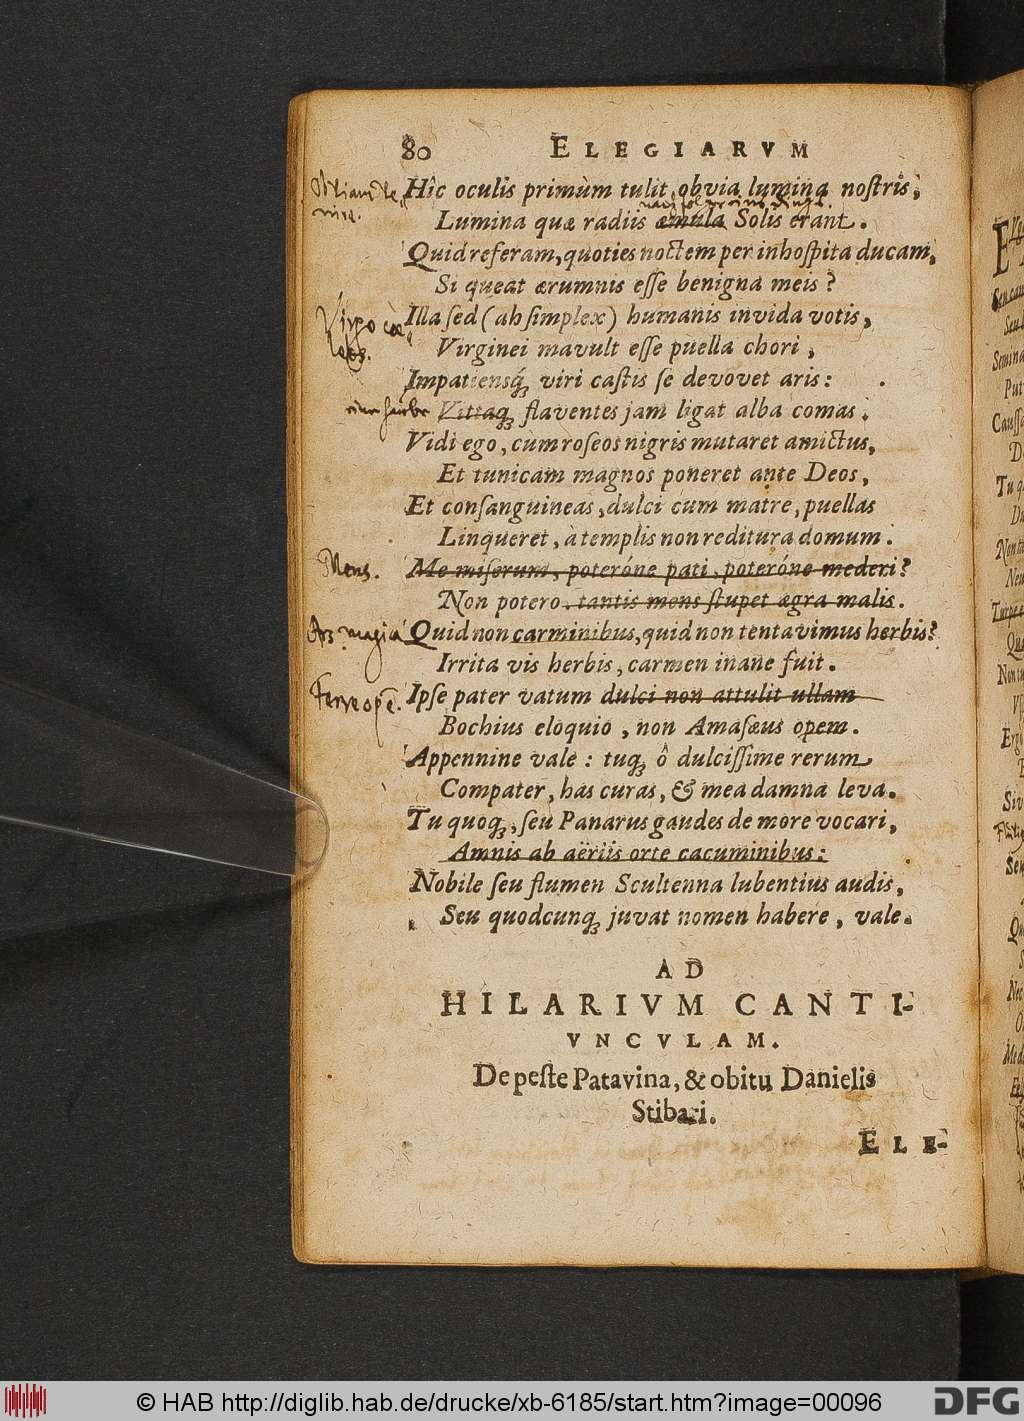 80 ELEGIARVM
Hîc oculis primùm tulit obvia lumina nostris,
Lumina quæ radiis æmula Solis erant.
Quid referam, quoties noctem per inhospita ducam,
Si queat ærumnis esse benigna meis?
Illa sed (ah simplex) humanis invida votis,
Virgo cœ
Virginei mavult esse puella chori,
Impatiensq́; viri castis se devovet aris:
Vittaq́; flaventes jam ligat alba comas.
Vidi ego, cum roseos nigris mutaret amictus,
Et tunicam magnos poneret ante Deos,
Et consanguineas, dulci cum matre, puellas
Linqueret, à templis non reditura domum.
Mens. Me miserum, poteróne pati, poteróne mederi?
Non potero. tantis mens stupet ægra malis.
Ars magica Quid non carminibus, quid non tentavimus herbis?
Irrita vis herbis, carmen inane fuit.
Ipse pater vatum dulci non attulit ullam
Bochius eloquio, non Amasæus opem.
Appennine vale: tuq́; ô dulcissime rerum
Compater, has curas, & mea damna leva.
Tu quoq́;, seu Panarus gaudes de more vocari,
Amnis ab aëriis orte cacuminibus:
Nobile seu flumen Scultenna lubentius audis,
Seu quodcunq́; juvat nomen habere, vale.
AD
HILARIVM CANTI-
VNCVLAM.
De peste Patavina, & obitu Danielis
Stibari.
ELE-
© HAB http://diglib.hab.de/drucke/xb-6185/start.htm?image=00096
DFG